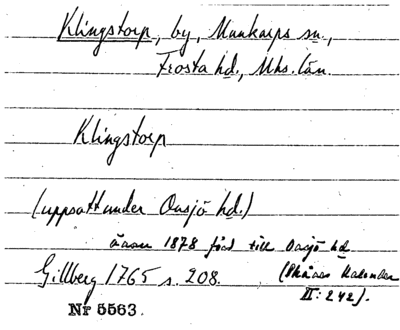 Klingstorp, by, Munkarps sn.,
Frosta hd., Mhs. län.
Klingstorp
(uppsatt under Onsjö hd.)
ännu 1878 förd till Onsjö hd
Gillberg 1765 s. 208. (Skånes Kalender
II: 242).
Nr 5563.